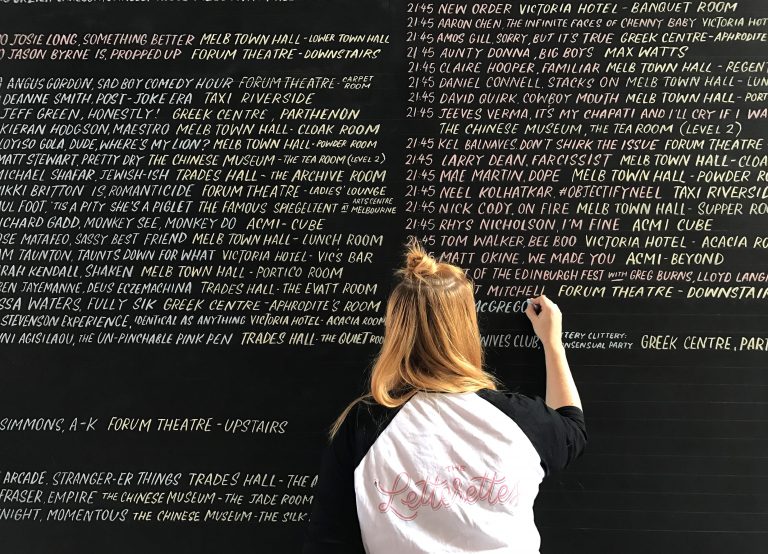 JOSIE LONG, SOMETHING BETTER MELB TOWN HALL - LOWER TOWN HALL
JASON BYRNE IS, PROPPED UP FORUM THEATRE - DOWNSTAIRS
ANGUS GORDON, SAD BOY COMEDY HOUR FORUM THEATRE - CARPET ROOM
DEANNE SMITH, POST-JOKE ERA TAXI RIVERSIDE
JEFF GREEN, HONESTLY! GREEK CENTRE, PARTHENON
KIERAN HODGSON, MAESTRO MELB TOWN HALL - CLOAK ROOM
LOYISO GOLA, DUDE, WHERE'S MY LION? MELB TOWN HALL - POWDER ROOM
MATT STEWART, PRETTY DRY THE CHINESE MUSEUM - THE TEA ROOM (LEVEL 2)
MICHAEL SHAFAR, JEWISH-ISH TRADES HALL - THE ARCHIVE ROOM
NIKKI BRITTON IS, ROMANTICIDE FORUM THEATRE - LADIES' LOUNGE
PAUL FOOT, 'TIS A PITY SHE'S A PIGLET THE FAMOUS SPIEGELTENT AT ARTS CENTRE MELBOURNE
RICHARD GADD, MONKEY SEE, MONKEY DO ACMI - CUBE
ROSE MATAFEO, SASSY BEST FRIEND MELB TOWN HALL - LUNCH ROOM
TAUNTON, TAUNTS DOWN FOR WHAT VICTORIA HOTEL - VIC'S BAR
SARAH KENDALL, SHAKEN MELB TOWN HALL - PORTICO ROOM
JAYEMANNE, DEUS ECZEMACHINA TRADES HALL - THE EVATT ROOM
WATERS, FULLY SIK GREEK CENTRE - APHRODITE'S ROOM
STEVENSON EXPERIENCE, IDENTICAL AS ANYTHING VICTORIA HOTEL - ACACIA ROOM
AGISILAOU, THE UN-PINCHABLE PINK PEN TRADES HALL - THE QUIET ROOM
SIMMONS, A-K FORUM THEATRE - UPSTAIRS
ARCADE, STRANGER-ER THINGS TRADES HALL - THE
FRASER, EMPIRE THE CHINESE MUSEUM - THE JADE ROOM
MOMENTOUS THE CHINESE MUSEUM - THE SILK
21:45 NEW ORDER VICTORIA HOTEL - BANQUET ROOM
21:45 AARON CHEN, THE INFINITE FACES OF CHENNY BABY VICTORIA
21:45 AMOS GILL, SORRY, BUT IT'S TRUE GREEK CENTRE - APHRODITE
21:45 AUNTY DONNA, BIG BOYS MAX WATTS
21:45 CLAIRE HOOPER, FAMILIAR MELB TOWN HALL - REGENT
21:45 DANIEL CONNELL, STACKS ON MELB TOWN HALL - LUN
21:45 DAVID QUIRK, COWBOY MOUTH MELB TOWN HALL - PORT
21:45 JEEVES VERMA, IT'S MY CHAPATI AND I'LL CRY IF I WA
THE CHINESE MUSEUM, THE TEA ROOM (LEVEL 2)
21:45 KEL BALNAVES, DON'T SHIRK THE ISSUE FORUM THEATRE -
21:45 LARRY DEAN, FARCISSIST MELB TOWN HALL - CLOA
21:45 MAE MARTIN, DOPE MELB TOWN HALL - POWDER RO
21:45 NEEL KOLHATKAR, #OBJECTIFYNEEL TAXI RIVERSID
21:45 NICK CODY, ON FIRE MELB TOWN HALL - SUPPER ROO
21:45 RHYS NICHOLSON, I'M FINE ACMI CUBE
45 TOM WALKER, BEE BOO VICTORIA HOTEL - ACACIA RO
MATT OKINE, WE MADE YOU ACMI - BEYOND
OF THE EDINBURGH FEST WITH GREG BURNS, LLOYD LANG
MITCHELL FORUM THEATRE - DOWNSTAIR
MCGREGO
WIVES CLUB, CLITTERY: GREEK CENTRE, PART
PARTY
THE
Letterettes